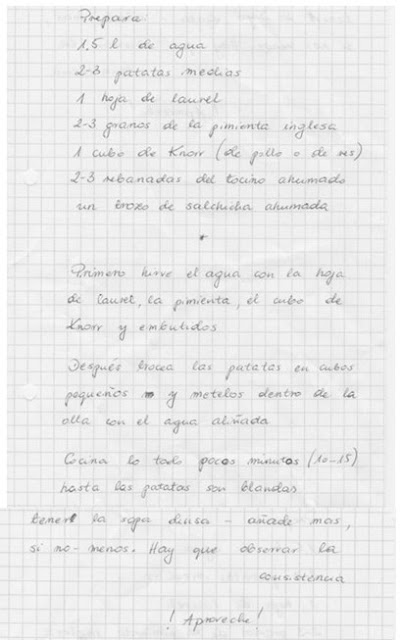 Prepara:
1,5 l de agua
2-3 patatas medias
1 hoja de laurel
2-3 granos de la pimienta inglesa
1 cubo de Knorr (de pollo o de res)
2-3 rebanadas del tocino ahumado
un trozo de salchicha ahumada
*
Primero hirve el agua con la hoja
de laurel, la pimienta, el cubo de
Knorr y embutidos
Después trocea las patatas en cubos
pequeños y metelos dentro de la
olla con el agua aliñada
Cocina lo todo pocos minutos (10-15)
hasta las patatas son blandas
tener la sopa densa - añade mas,
si no-menos. Hay que observar la
consistencia
¡Aproveche!